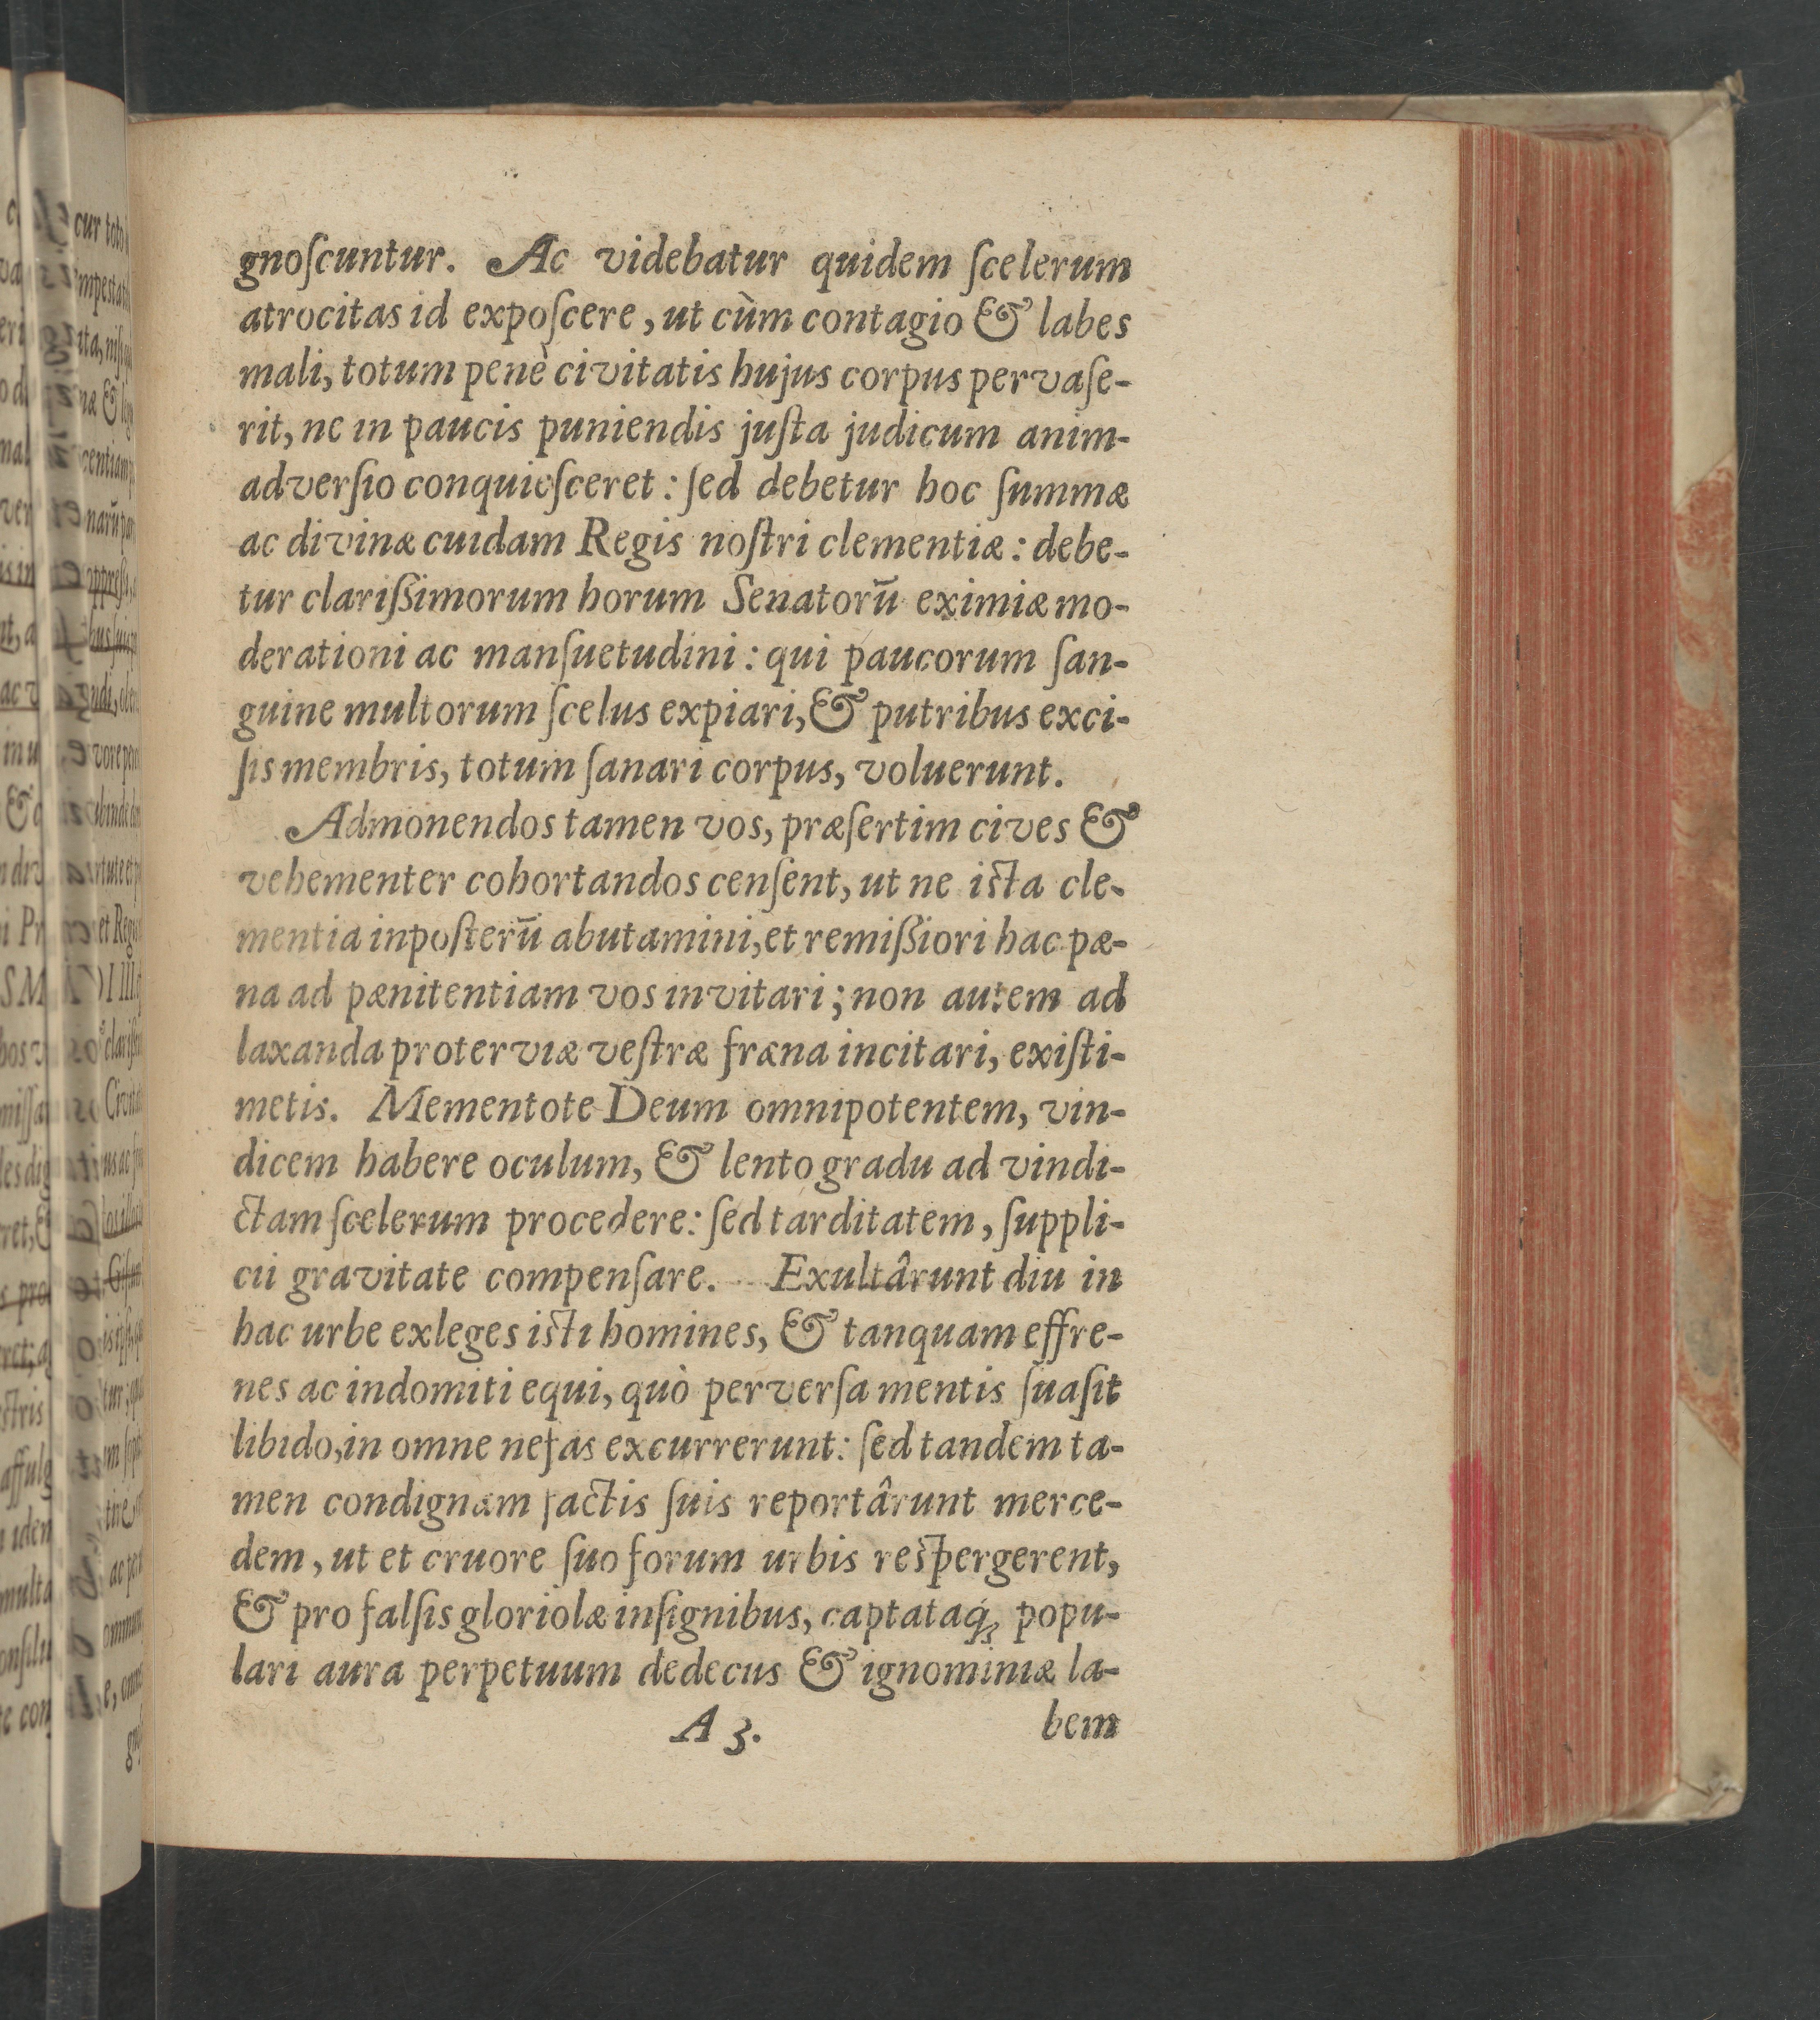 gnoſcuntur. Ac videbatur quidem ſcelerum
atrocitas id expoſcere, ut cùm contagio & labes
mali, totum penè civitatis hujus corpus pervaſe-
rit, ne in paucis puniendis juſta judicum anim-
adverſio conquieſceret: ſed debetur hoc ſummæ
ac divinæ cuidam Regis noſtri clementiæ: debe-
tur clariſſimorum horum Senatorū eximiæ mo-
derationi ac manſuetudini: qui paucorum ſan-
guine multorum ſcelus expiari, & putribus exci-
ſis membris, totum ſanari corpus, voluerunt.
Admonendos tamen vos, præſertim cives &
vehementer cohortandos cenſent, ut ne iſta cle-
mentia inpoſterū abutamini, et remiſſiori hac pæ-
na ad pænitentiam vos invitari; non autem ad
laxanda proterviæ veſtræ fræna incitari, exiſti-
metis. Mementote Deum omnipotentem, vin-
dicem habere oculum, & lento gradu ad vindi-
ctam ſcelerum procedere: ſed tarditatem, ſuppli-
cii gravitate compenſare. Exultârunt diu in
hac urbe exleges iſti homines, & tanquam effre-
nes ac indomiti equi, quò perverſa mentis ſuaſit
libido, in omne nefas excurrerunt: ſed tandem ta-
men condignam factis ſuis reportârunt merce-
dem, ut et cruore ſuo forum urbis reſpergerent,
& pro falſis gloriolæ inſignibus, captataq́ꝫ popu-
lari aura perpetuum dedecus & ignominiæ la-
A 3. bem